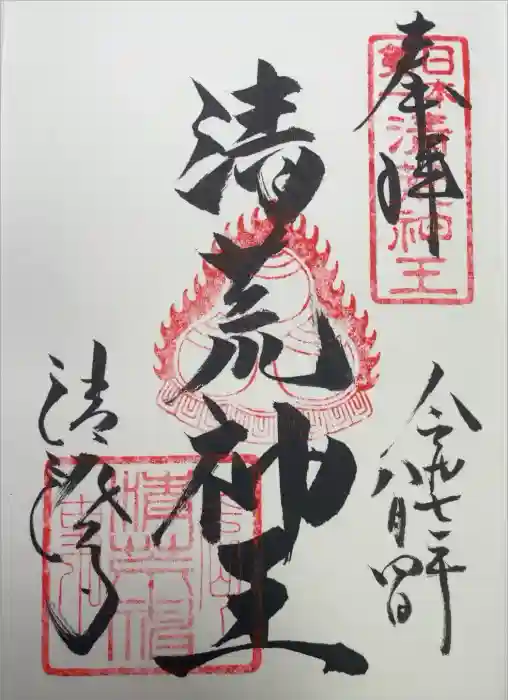 奉拝
日本
清荒神王
清荒神王
令和七年
八月四日
清澄寺
清荒神